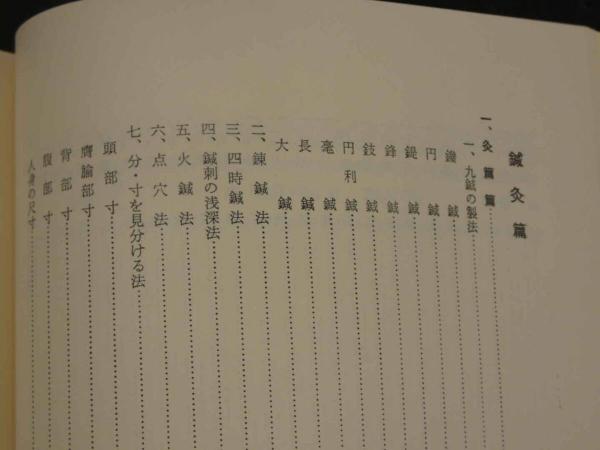 鍼灸篇
一、灸篇篇
一、九鍼の製法
鑱鍼
円鍼
鍉鍼
鋒鍼
鈹鍼
円利鍼
毫鍼
長鍼
大鍼
二、錬鍼法
三、四時鍼法
四、鍼刺の浅深法
五、火鍼法
六、点穴法
七、分・寸を見分ける法
頭部寸
膺諭部寸
背部寸
腹部寸
人身の尺寸